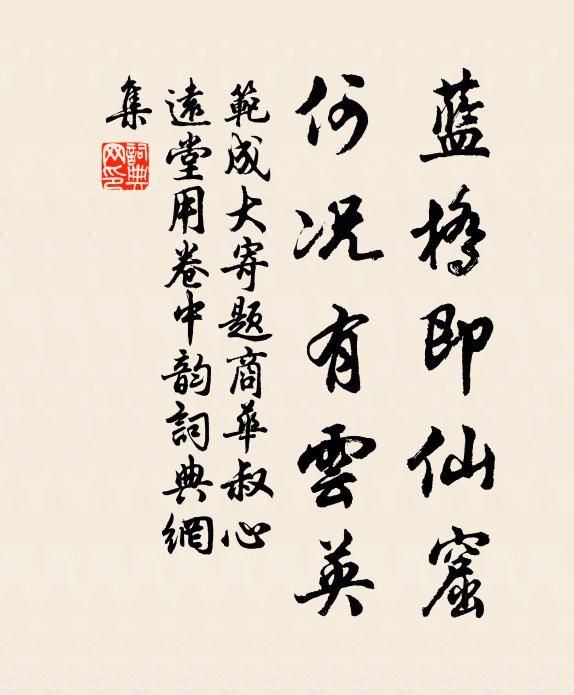 藍橋即仙窟
何況有雲英
範成大寄題商華叔心
遠堂用卷中韵詞典網
集
詞典
网印